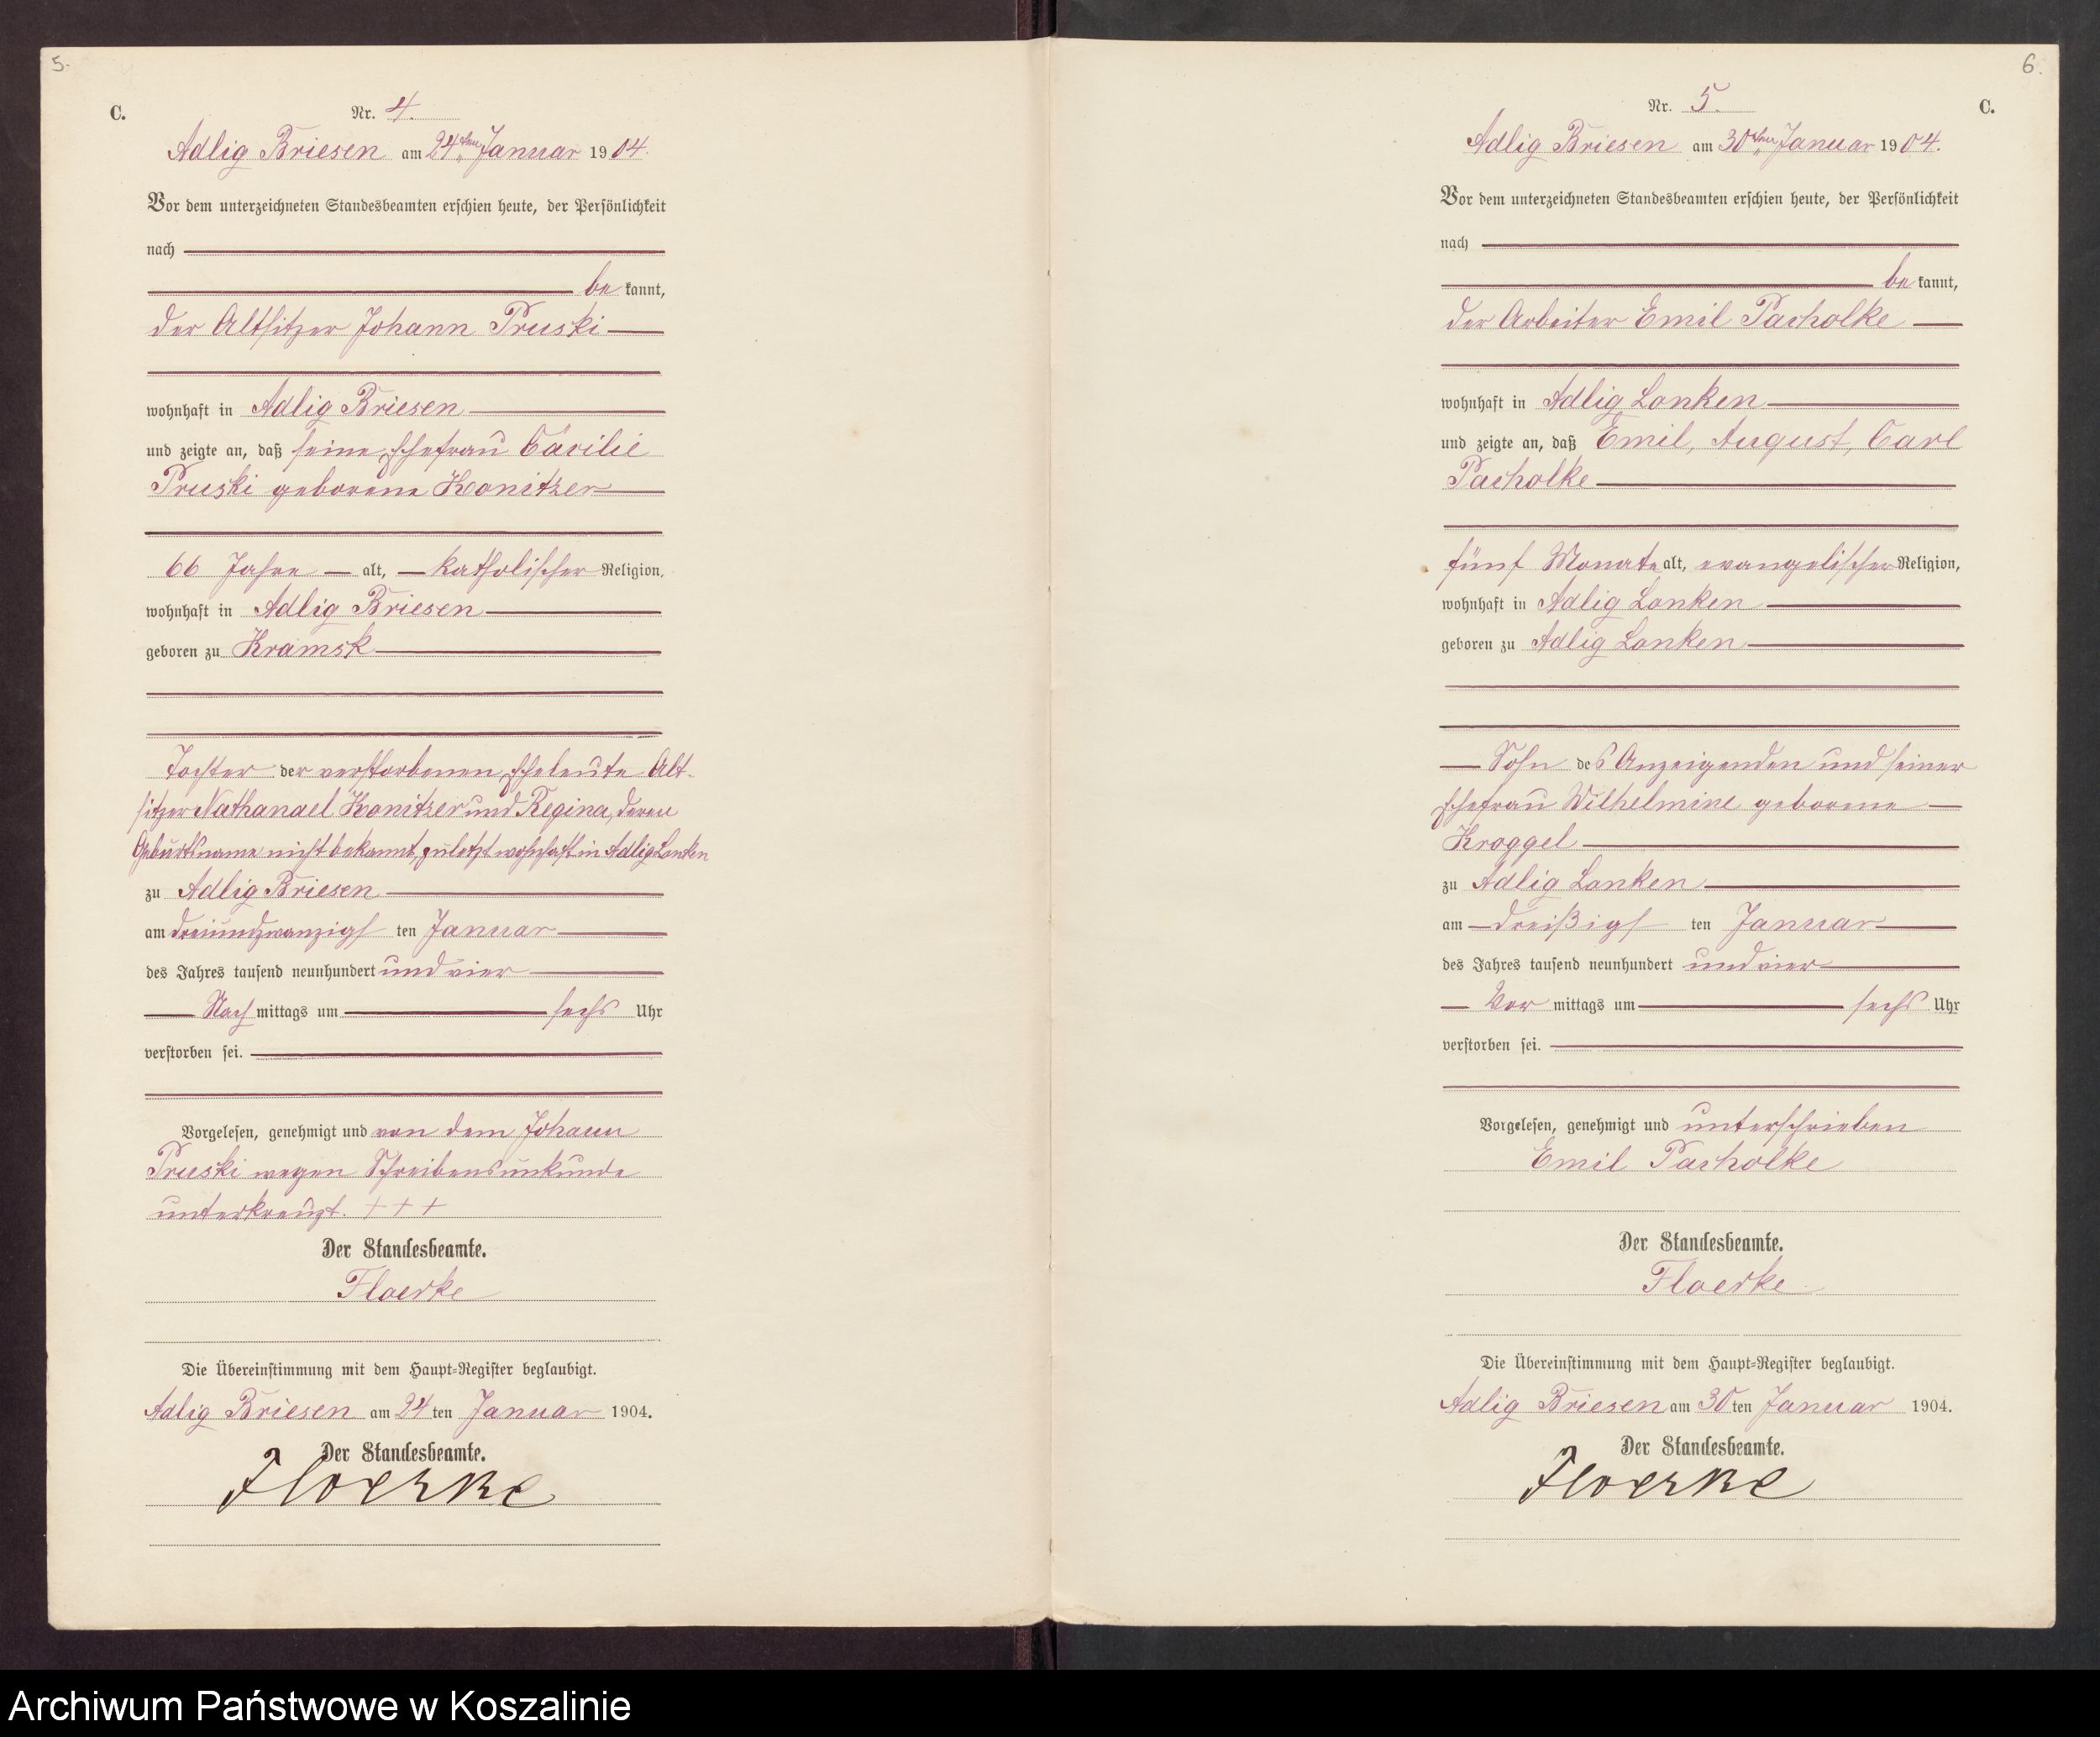 5.
C.
Nr. 4.
Adlig Briesen am 24ten Januar 1904.
Vor dem unterzeichneten Standesbeamten erschien heute, der Persönlichkeit
nach
be kannt,
der Altsitzer Johann Pruski
wohnhaft in Adlig Briesen
und zeigte an, daß seine Ehefrau Cäcilie
Pruski geborene Konitzer
66 Jahre alt, katholischer Religion,
wohnhaft in Adlig Briesen
geboren zu Kramsk
Tochter der verstorbenen Eheleute Alt-
sitzer Nathanael Konitzer und Regina, deren
Geburtsname nicht bekannt, zuletzt wohnhaft in Adlig Lanken
zu Adlig Briesen
am dreiundzwanzigsten Januar
des Jahres tausend neunhundert und vier
Nachmittags um sechs Uhr
verstorben sei.
Vorgelesen, genehmigt und von dem Johann
Pruski wegen Schreibensunkunde
unterkreuzt. + + +
Der Standesbeamte.
Floerke
Die Übereinstimmung mit dem Haupt-Register beglaubigt.
Adlig Briesen am 24ten Januar 1904.
Der Standesbeamte.
Floerke
6.
Nr. 5.
C.
Adlig Briesen am 30ten Januar 1904.
Vor dem unterzeichneten Standesbeamten erschien heute, der Persönlichkeit
nach
be kannt,
der Arbeiter Emil Pacholke
wohnhaft in Adlig Lanken
und zeigte an, daß Emil, August, Carl
Pacholke
fünf Monate alt, evangelischer Religion,
wohnhaft in Adlig Lanken
geboren zu Adlig Lanken
Sohn des Anzeigenden und seiner
Ehefrau Wilhelmine geborene
Kroggel
zu Adlig Lanken
am dreißigsten Januar
des Jahres tausend neunhundert und vier
Vormittags um sechs Uhr
verstorben sei.
Vorgelesen, genehmigt und unterschrieben
Emil Pacholke
Der Standesbeamte.
Floerke
Die Übereinstimmung mit dem Haupt-Register beglaubigt.
Adlig Briesen am 30ten Januar 1904.
Der Standesbeamte.
Floerke
Archiwum Państwowe w Koszalinie